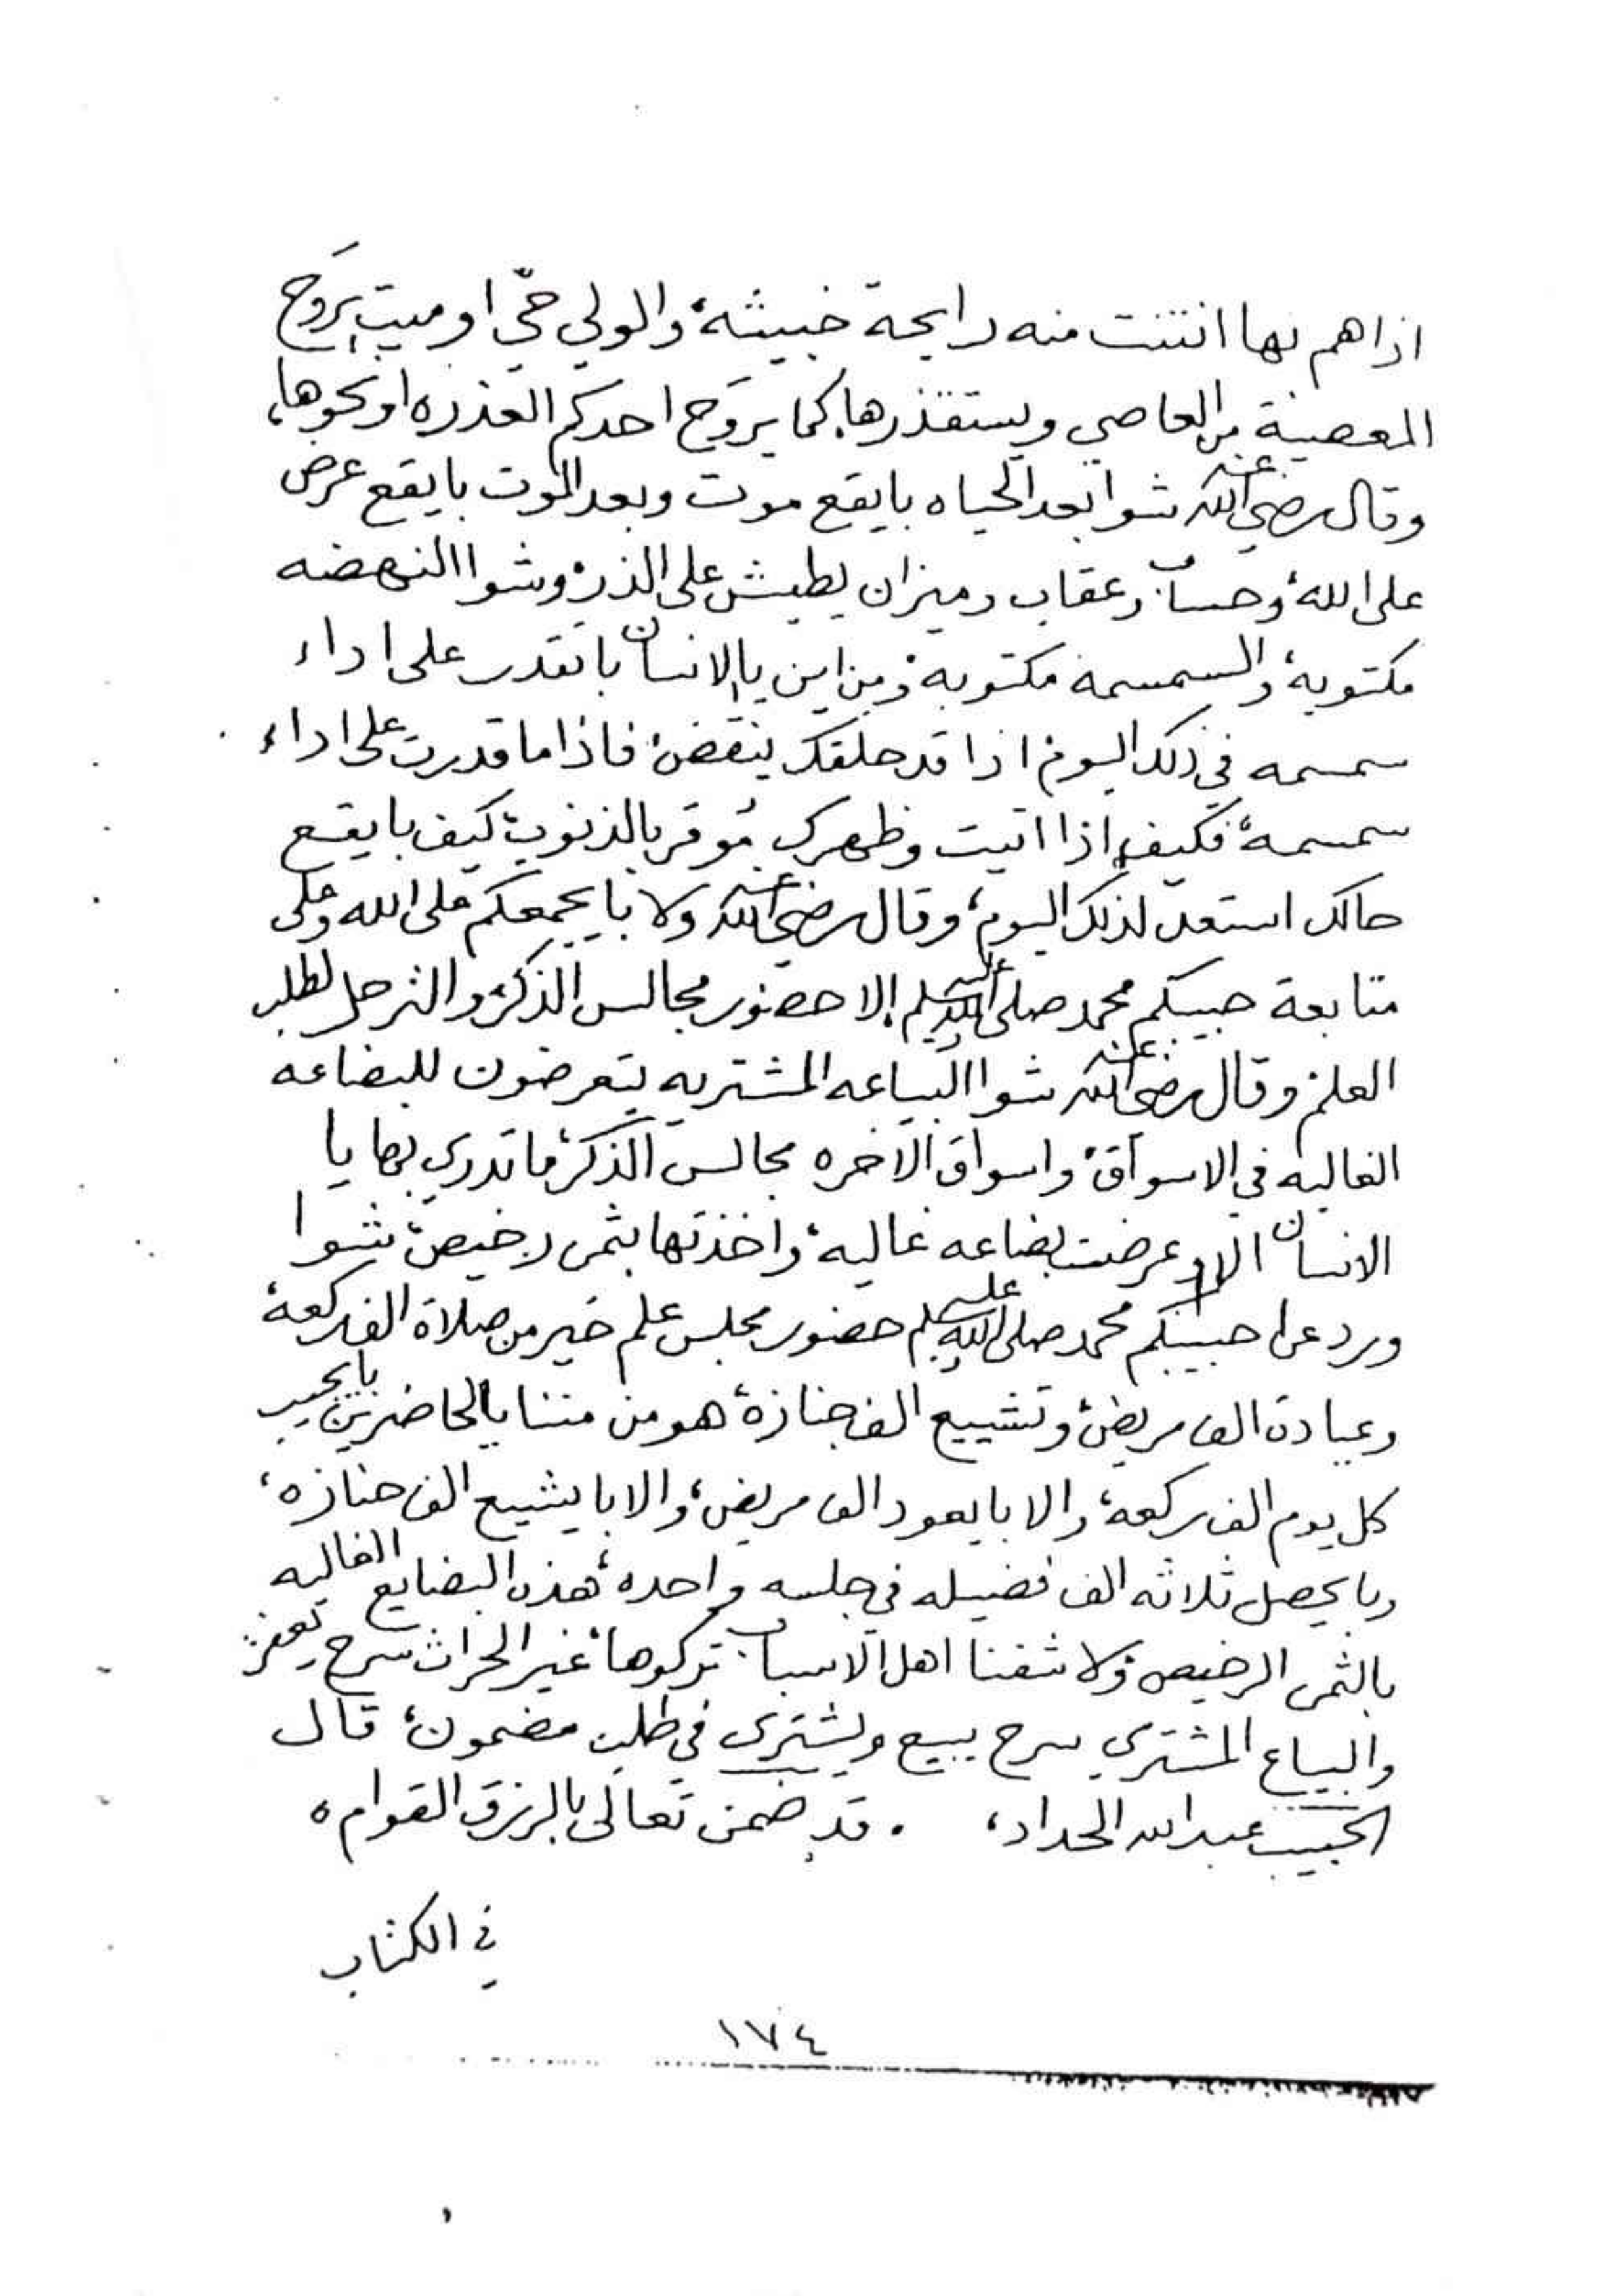 اذا هم بها انتنت منه رايحة خبيثة، والولي حيّ او ميت يروَح
المعصية من العاصي ويستقذرها، كما يروَح احدكم العذره او نحوها،
وقال رضي الله عنه شوا بعد الحياه بايقع موت وبعد الموت بايقع عرض
على الله، وحساب وعقاب وميزان يطيش على الذر، وشوا النهضه
مكتوبة، والسمسمه مكتوبه، ومن اين يا الانسان باتقدر على اداء
سمسمه في ذلك اليوم، اذا قد حلقك ينقض، فاذا ما قدرت على اداء
سمسمة، فكيف اذا اتيت وظهرك مُوقر بالذنوب، كيف بايقع
حالك استعد لذلك اليوم، وقال رضي الله عنه ولا بايجمعكم على الله وعلى
متابعة حبيبكم محمد صلى الله عليه وسلم إلا حضور مجالس الذكر، والترحل لطلب
العلم، وقال رضي الله عنه شوا البياعه المشتريه يتعرضون للبضاعه
الغاليه في الاسواق، واسواق الآخره مجالس الذكر، ما تدري بها يا
الانسان الا وعرضت بضاعه غاليه، واخذتها بثمن رخيص، شوا
ورد عن حبيبكم محمد صلى الله عليه وسلم حضور مجلس علم خير من صلاة الف ركعة،
وعيادة الف مريض، وتشييع الف جنازة، هو من مننا يا الحاضرين بايجيب
كل يوم الف ركعة، والا بايعود الف مريض، والا بايشييع الف جنازه،
وبايحصل ثلاثه الف فضيله في جلسه واحده، هذه البضايع الغاليه
بالثمن الرخيص، ولا شفنا اهل الاسباب تركوها، غير الحراث سرح
والبياع المشتري سرح يبيع ويشتري في طلب مضمون، قال
الحبيب عبد الله الحداد، . قد ضمن تعالى بالرزق القوام،
في الكتاب
١٧٤